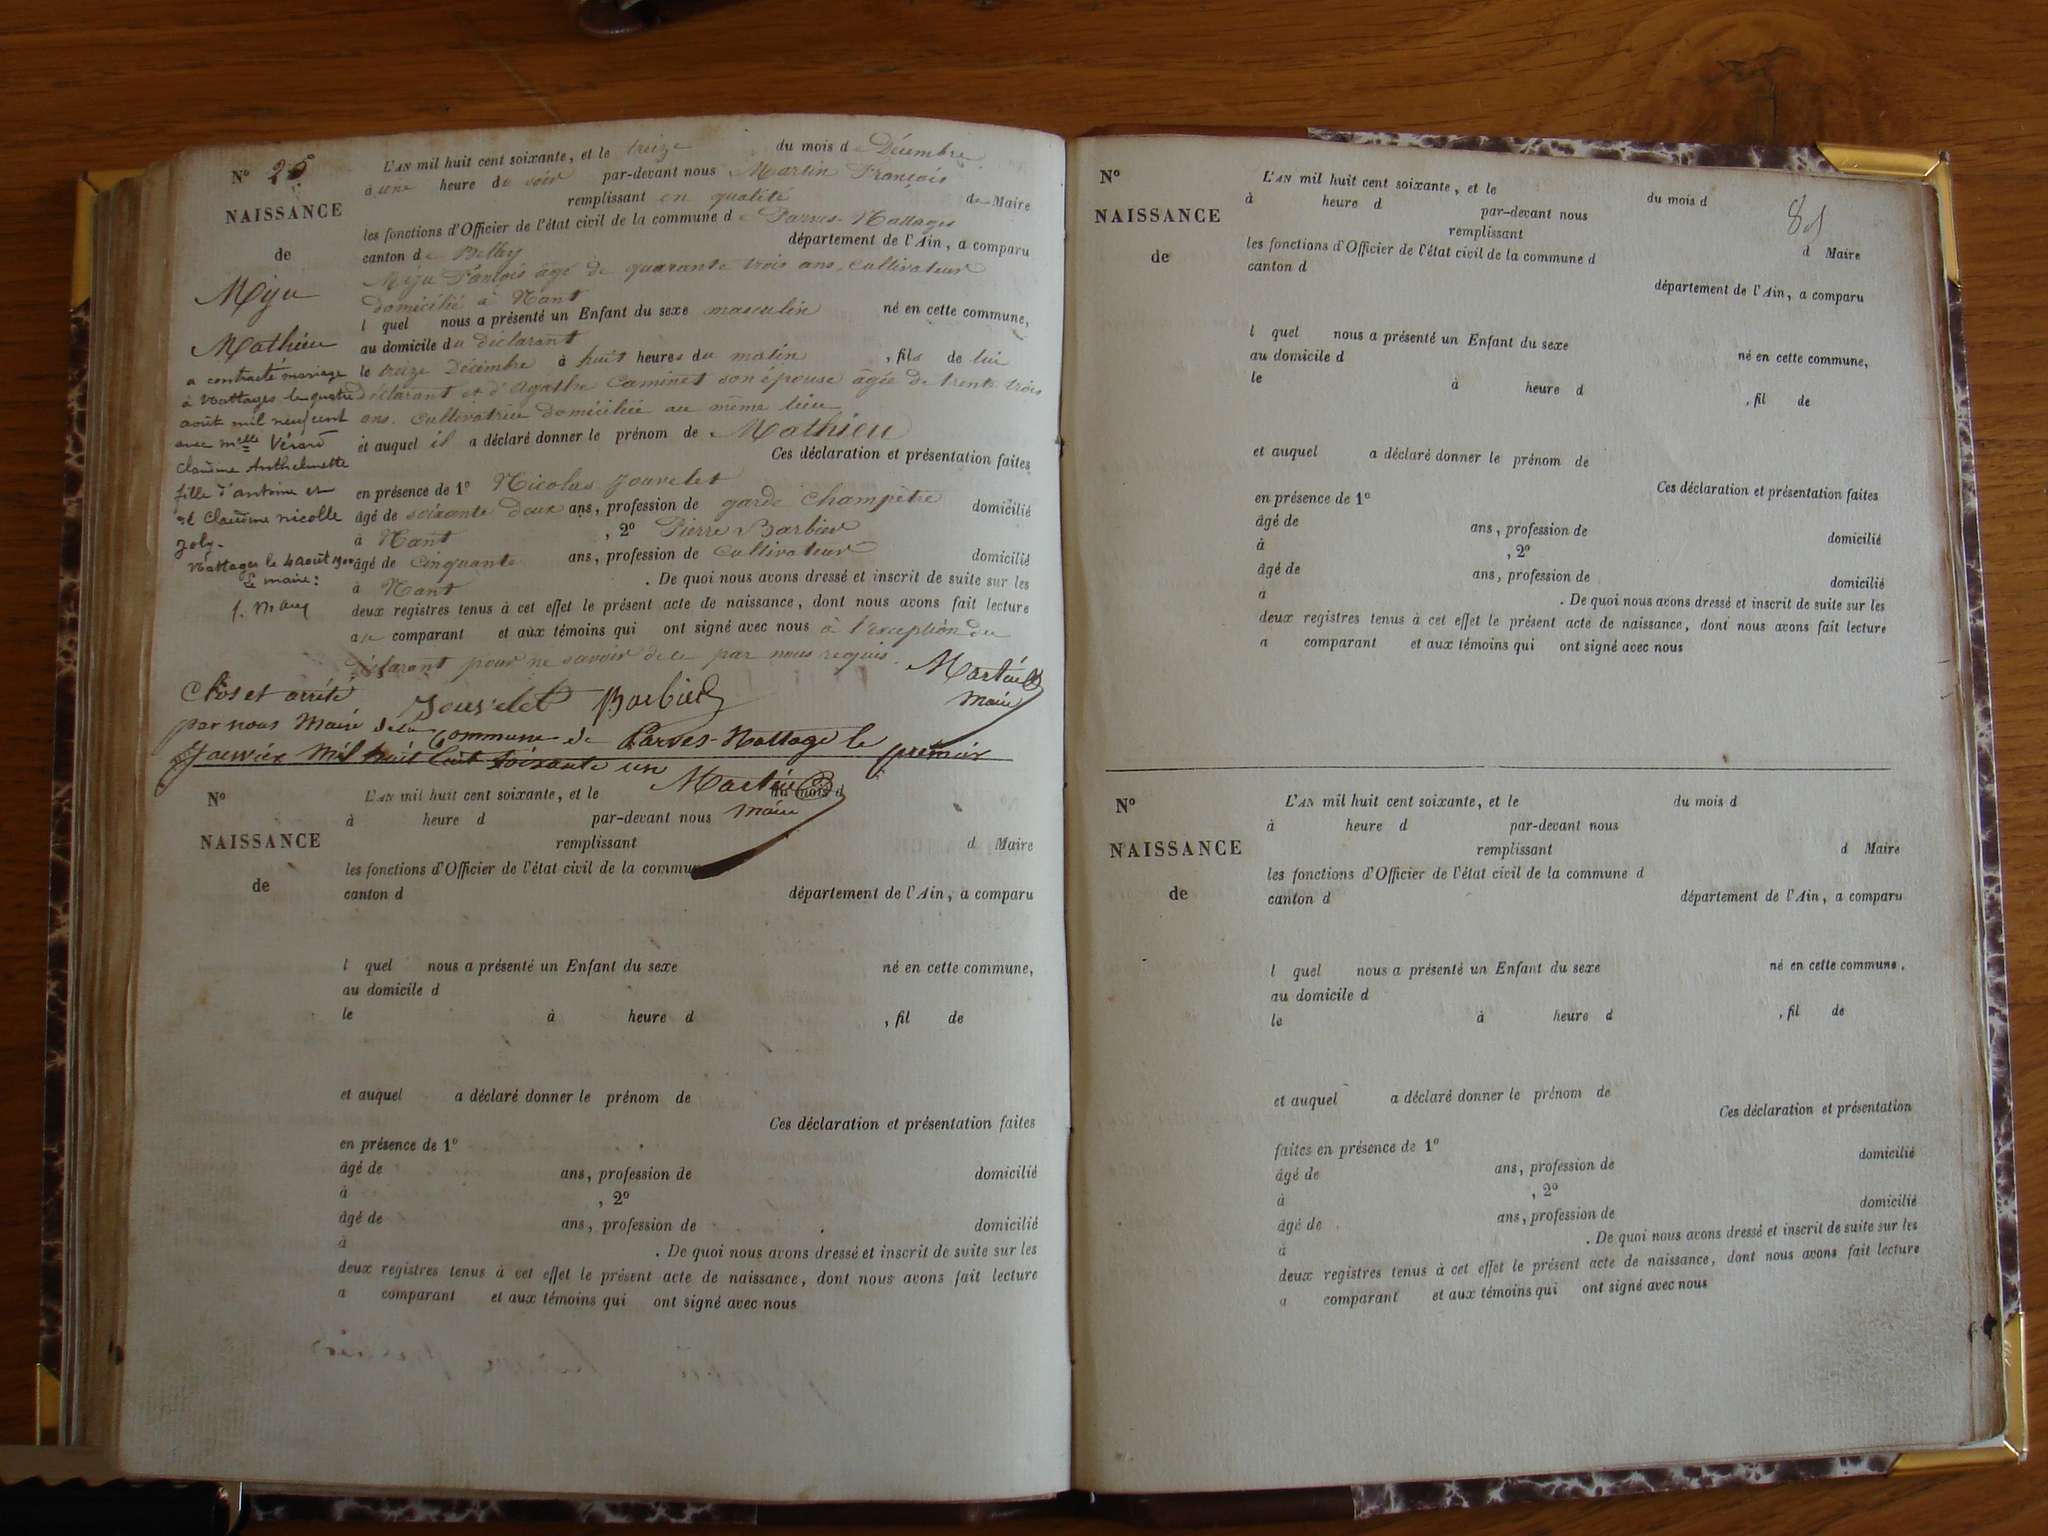 N° 25
NAISSANCE
de
Miju
Mathieu
a contracté mariage
à Nattages le quatre
août mil neuf cent
avec Melle Vérard
Claudine Anthelmette
fille d'antoine et
et Claudine nicolle
Joly.
Nattages le 4 août 1900
Le maire:
L'AN mil huit cent soixante, et le treize du mois de Décembre
à une heure du soir par-devant nous Martin François
remplissant en qualité de Maire
les fonctions d'Officier de l'état civil de la commune de Parves-Nattages
canton de Belley département de l'Ain, a comparu
Miju François âgé de quarante trois ans, cultivateur
domicilié à Nant
l quel nous a présenté un Enfant du sexe masculin né en cette commune,
au domicile du déclarant
le treize Décembre à huit heures du matin , fils de lui
déclarant et d'Agathe Caminet son épouse âgée de trente trois
ans. Cultivatrice domiciliée au même lieu
et auquel il a déclaré donner le prénom de Mathieu
Ces déclaration et présentation faites
en présence de 1° Nicolas Jouvelet
âgé de soixante deux ans, profession de garde champêtre domicilié
à Nant , 2° Pierre Barbier
âgé de cinquante ans, profession de cultivateur domicilié
à Nant . De quoi nous avons dressé et inscrit de suite sur les
deux registres tenus à cet effet le présent acte de naissance, dont nous avons fait lecture
au comparant et aux témoins qui ont signé avec nous à l'exception du
déclarant pour ne savoir de ce par nous requis.
Martin
maire
Jouvelet Barbier
Clos et arrêté
par nous Maire de la Commune de Parves-Nattage le premier
Janvier mil huit cent soixante un
Martin
maire
N°
NAISSANCE
de
L'AN mil huit cent soixante, et le du mois d
à heure d par-devant nous
remplissant d Maire
les fonctions d'Officier de l'état civil de la commun
canton d département de l'Ain, a comparu
l quel nous a présenté un Enfant du sexe né en cette commune,
au domicile d
le à heure d , fil de
et auquel a déclaré donner le prénom de
Ces déclaration et présentation faites
en présence de 1°
âgé de ans, profession de domicilié
à , 2°
âgé de ans, profession de domicilié
à . De quoi nous avons dressé et inscrit de suite sur les
deux registres tenus à cet effet le présent acte de naissance, dont nous avons fait lecture
a comparant et aux témoins qui ont signé avec nous
81
N°
NAISSANCE
de
L'AN mil huit cent soixante, et le du mois d
à heure d par-devant nous
remplissant d Maire
les fonctions d'Officier de l'état civil de la commune d
canton d département de l'Ain, a comparu
l quel nous a présenté un Enfant du sexe né en cette commune,
au domicile d
le à heure d , fil de
et auquel a déclaré donner le prénom de
Ces déclaration et présentation faites
en présence de 1°
âgé de ans, profession de domicilié
à , 2°
âgé de ans, profession de domicilié
à . De quoi nous avons dressé et inscrit de suite sur les
deux registres tenus à cet effet le présent acte de naissance, dont nous avons fait lecture
a comparant et aux témoins qui ont signé avec nous
N°
NAISSANCE
de
L'AN mil huit cent soixante, et le du mois d
à heure d par-devant nous
remplissant d Maire
les fonctions d'Officier de l'état civil de la commune d
canton d département de l'Ain, a comparu
l quel nous a présenté un Enfant du sexe né en cette commune,
au domicile d
le à heure d , fil de
et auquel a déclaré donner le prénom de
Ces déclaration et présentation
faites en présence de 1°
âgé de ans, profession de domicilié
à , 2°
âgé de ans, profession de domicilié
à . De quoi nous avons dressé et inscrit de suite sur les
deux registres tenus à cet effet le présent acte de naissance, dont nous avons fait lecture
a comparant et aux témoins qui ont signé avec nous